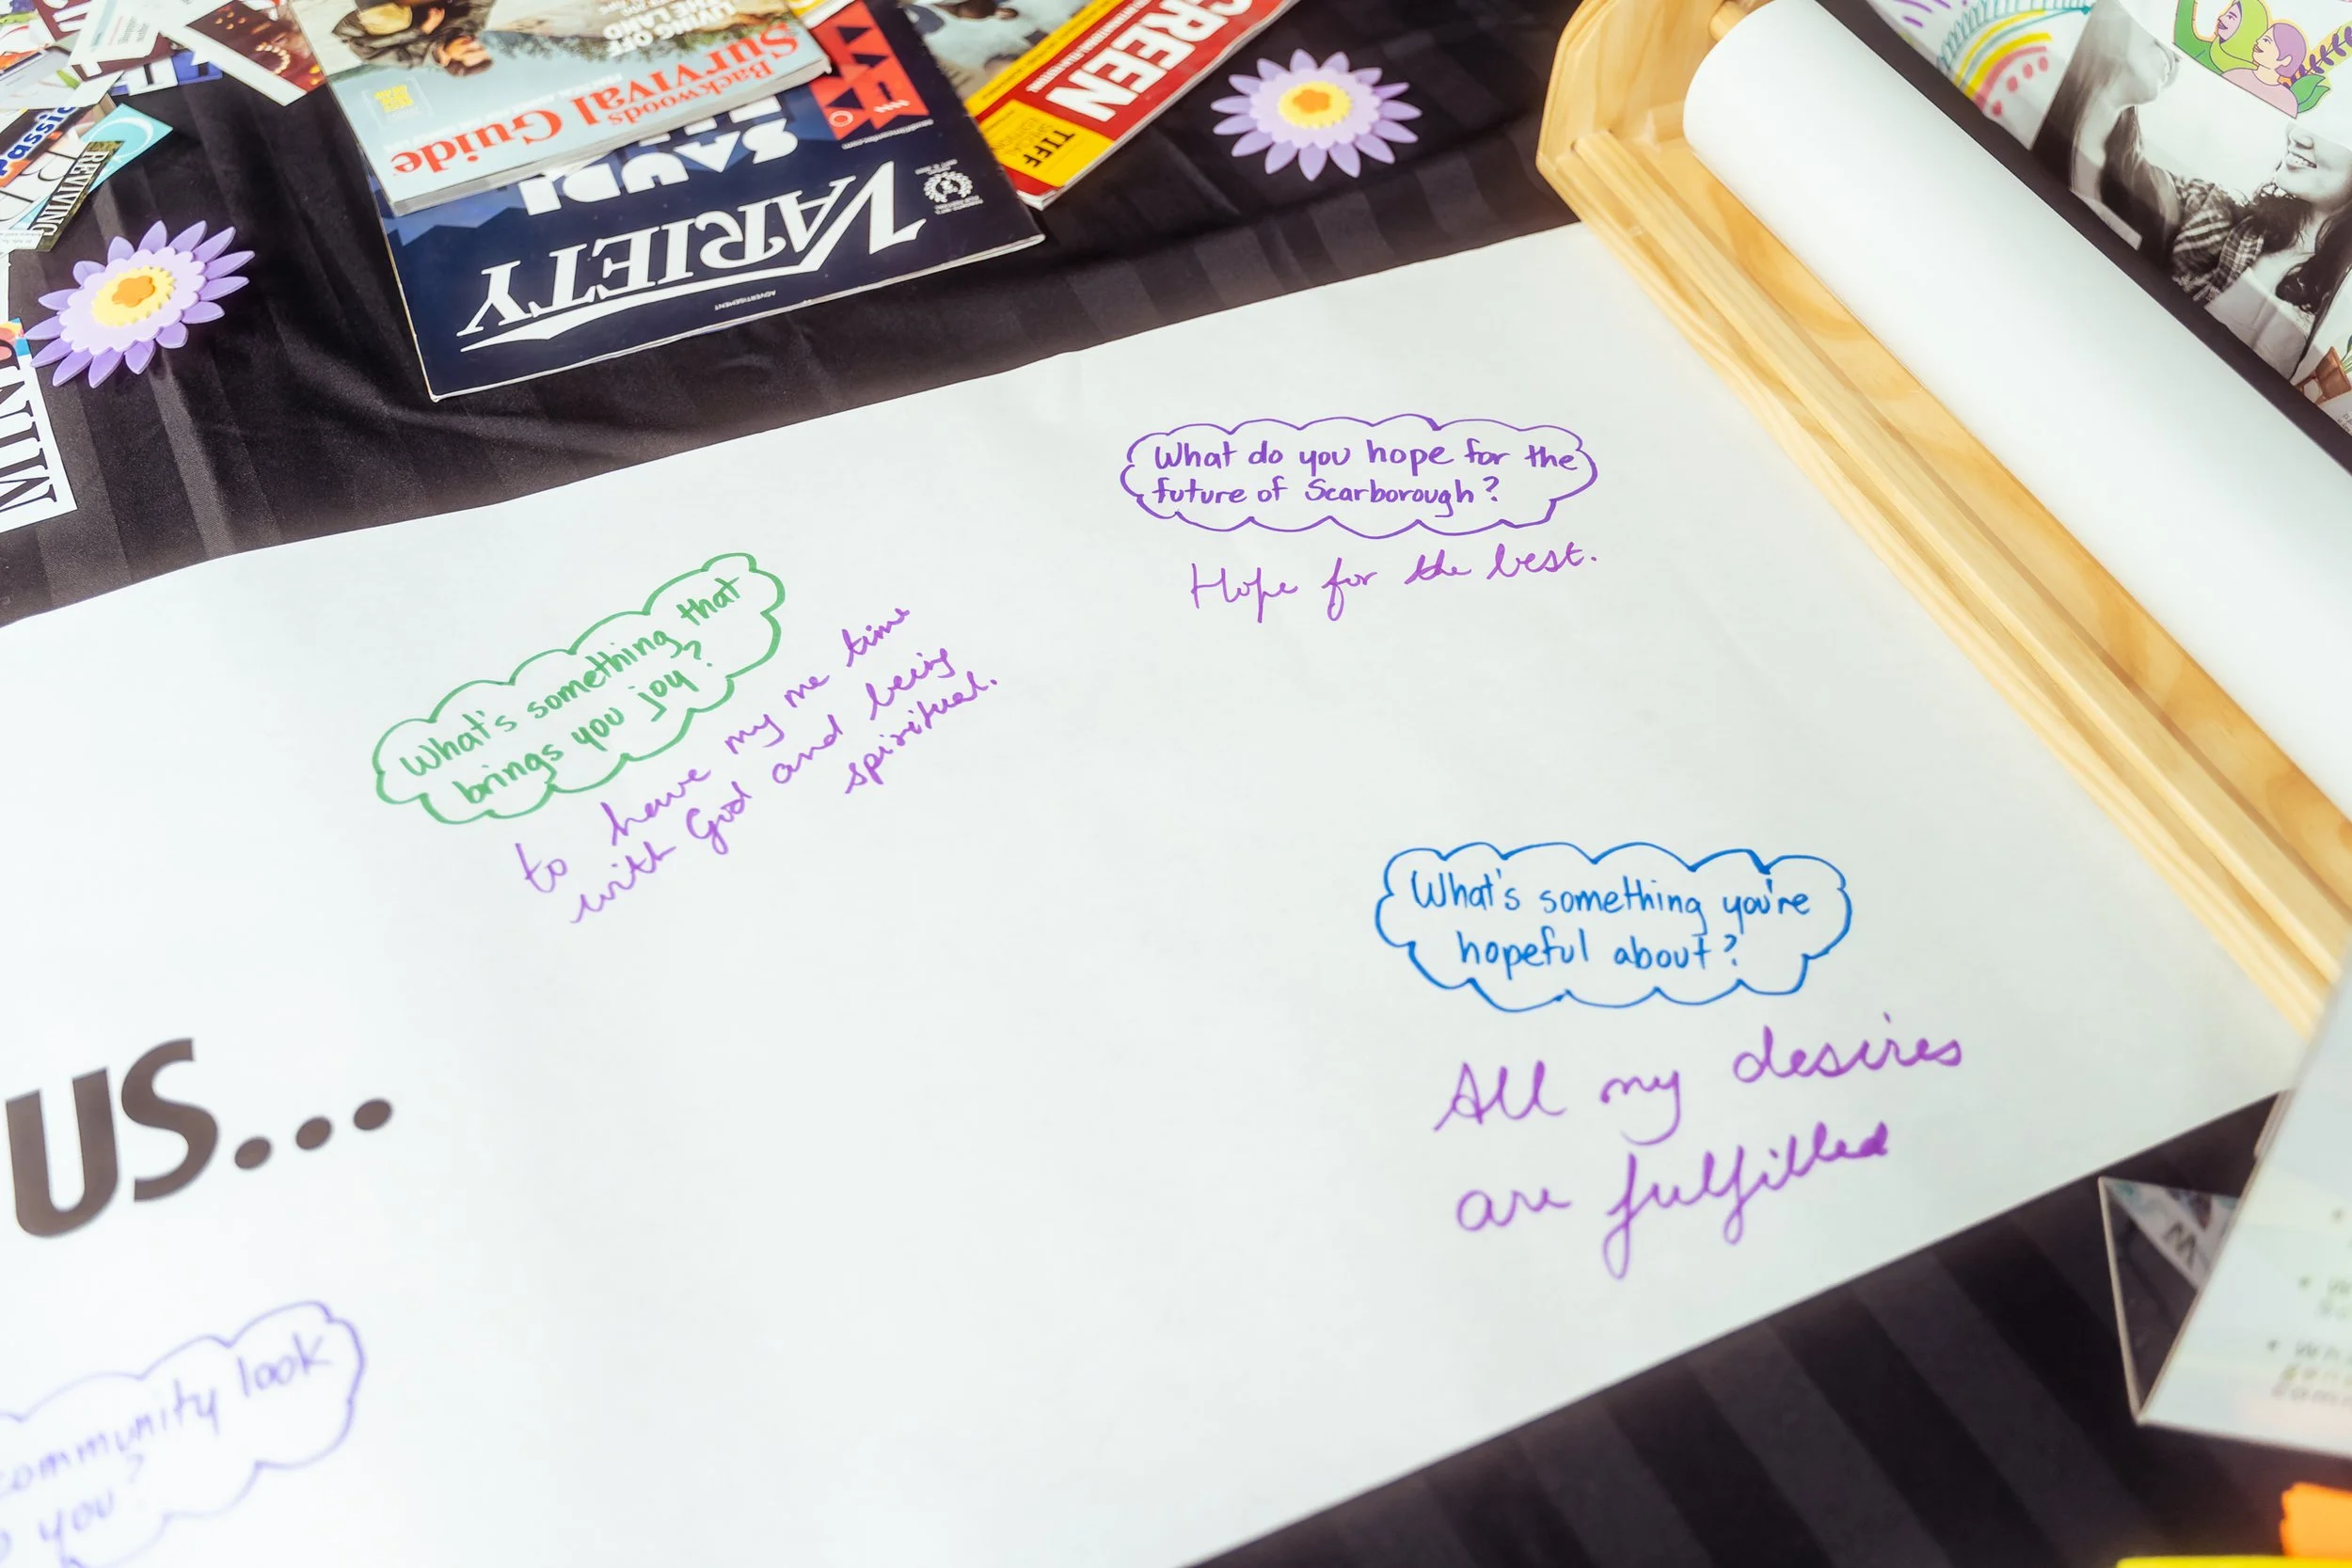 Passic
REVIVING
LIVING OFF
THE LAND
Backwoods
Survival Guide
SAUDI
VARIETY
ADVERTISEMENT
SCREEN
TIFF
MIN
What do you hope for the
future of Scarborough?
Hope for the best.
What's something that
brings you joy?
to have my me time
with God and being
spiritual.
What's something you're
hopeful about?
All my desires
are fulfilled
US...
community look
you?